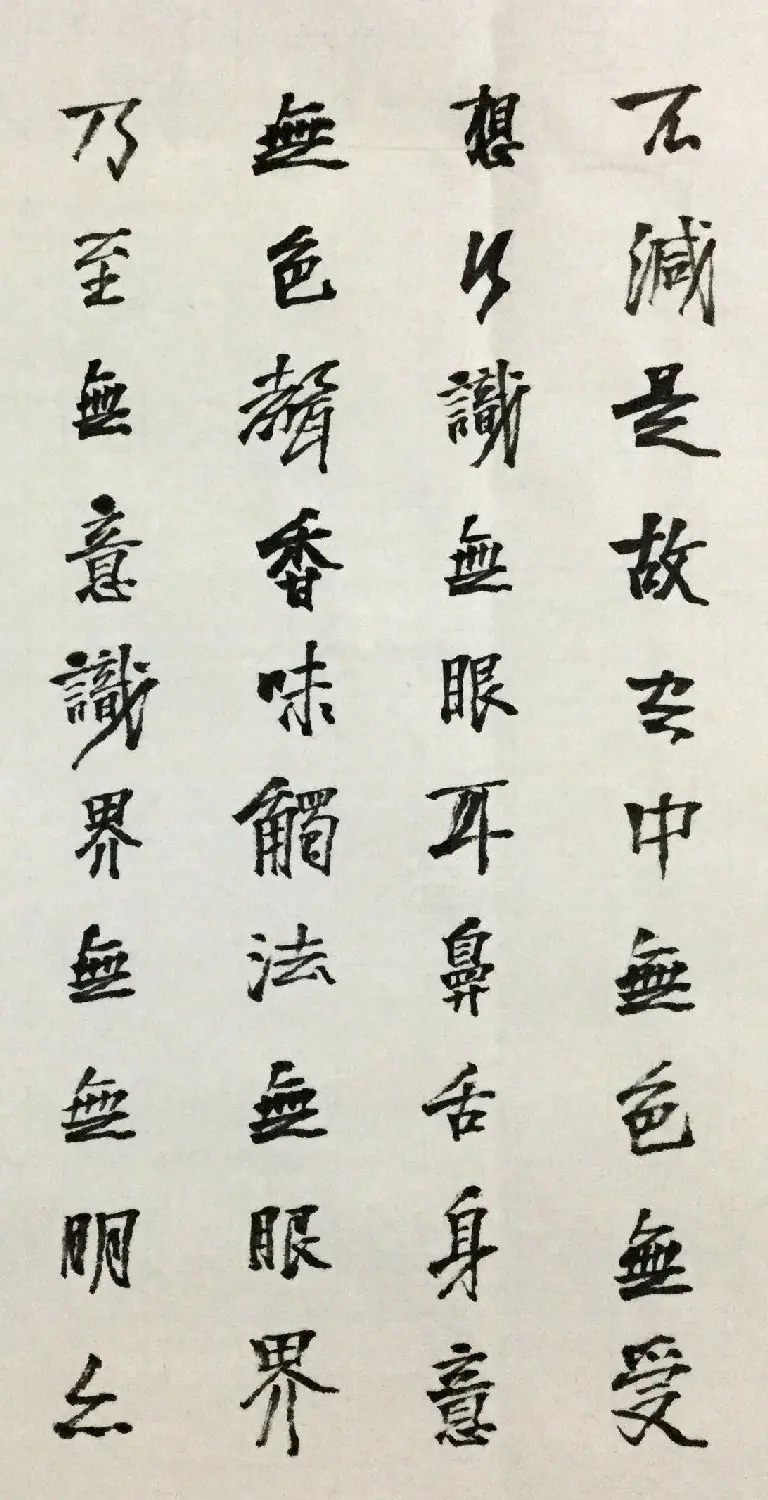 不減是故空中無色無受
想行識無眼耳鼻舌身意
無色聲香味觸法無眼界
乃至無意識界無無明亦